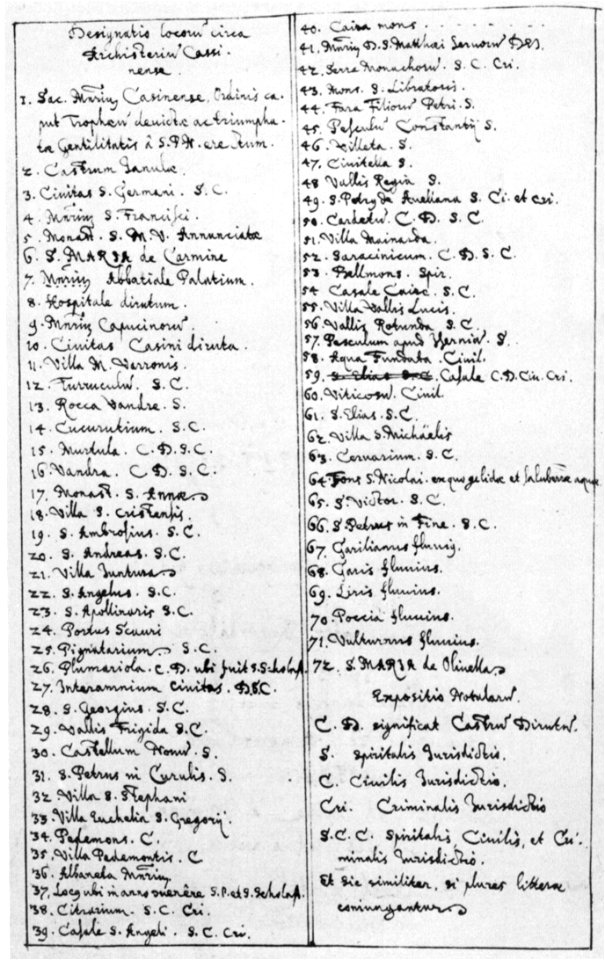 Designatio locorū circa
Archisteriū Cassi-
nense.
1. Sac. Mriū Casinense, Ordinis ca-
put Trophæū devictæ ac triumpha-
tæ Gentilitatis à S.P.N. erectum.
2. Castrum Janulæ.
3. Civitas S. Germani. S. C.
4. Mriū S. Francisci.
5. Monast. S. M. V. Annunciatæ
6. S. MARIA de Carmine
7. Mriū Abbatiale Palatium.
8. Hospitale dirutum.
9. Mriū Capucinorū.
10. Civitas Casini diruta.
11. Villa M. Varronis.
12. Turruculū. S. C.
13. Rocca Vandre. S.
14. Cucurutium. S. C.
15. Mortula. C. D. S. C
16. Vandra. C. D. S. C.
17. Monast. S. Annæ
18. Villa S.
19. S. Ambrosius. S. C.
20. S. Andreas. S. C.
21. Villa Juntura
22. S. Angelus. S. C.
23. S. Apollinaris S. C.
24. Portus Scauri
25. Pignatarium. S. C.
26. Plumariola. C. D. ubi fuit S. Scholast.
27. Interamnium Civitas. D.S.C.
28. S. Georgius. S. C.
29. Vallis Frigida S. C.
30. Castellum Novū. S.
31. S. Petrus in Curulis. S.
32. Villa S. Stephani
33. Villa Euchelia S. Gregorij.
34. Pedemons. C.
35. Villa Pedemontis. C
36. Albaneta Mriū
37. Locus ubi S.P. et S. Scholast.
38. Citrarium. S. C. Cri.
39. Casale S. Angeli. S. C. Cri.
40. Caira mons.
41. Mriū D. S. Matthæi Servorū DEI.
42. Serra Monachorū. S. C. Cri.
43. Mons. S. Liberatoris.
44. Fara Filiorū Petri. S.
45. Pasculū Constantij S.
46. Villeta. S.
47. Civitella S.
48 Vallis Regia S.
49. S. Petrus Avellana S. Ci. et cri.
50. Cardetū C. D. S. C.
51. Villa Mainarda.
52. Saracinicum. C. D. S. C.
53. Bellmons. Spir.
54 Casale Caisc. S. C.
55. Villa Vallis Lucis.
56. Vallis Rotunda S. C.
57. Pasculum apud Yserniā S.
58. Aqua Fundata Civil.
59. S. Elias S.C. Casale C. D. Civ. Cri.
60. Viticosū Civil
61. S. Elias. S. C.
62. Villa S. Michaëlis
63. Cervarium. S. C.
64. Fons S. Nicolai. ex quo gelidæ et saluberræ aquæ
65. S. Victor. S. C.
66. S. Petrus in Fine. S. C.
67. Garilianus fluviꝯ.
68. Garis fluvius.
69. Liris fluvius.
70. Poccia fluvius.
71. Vulturnus fluvius.
72. S. MARIA de Olivella
Expositio Notularū.
C. D. significat Castrū Dirutū.
S. Spiritalis Jurisdictio.
C. Civilis Jurisdictio.
Cri. Criminalis Jurisdictio
S. C. C. Spiritalis Civilis, et Cri-
minalis Jurisdictio.
Et sic similiter, si plures litteræ
coniungantur